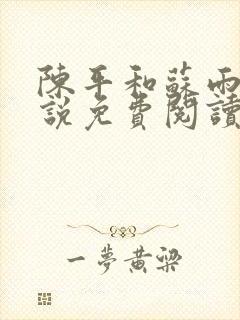 陳平和蘇雨
說免費閱讀
一夢黃梁